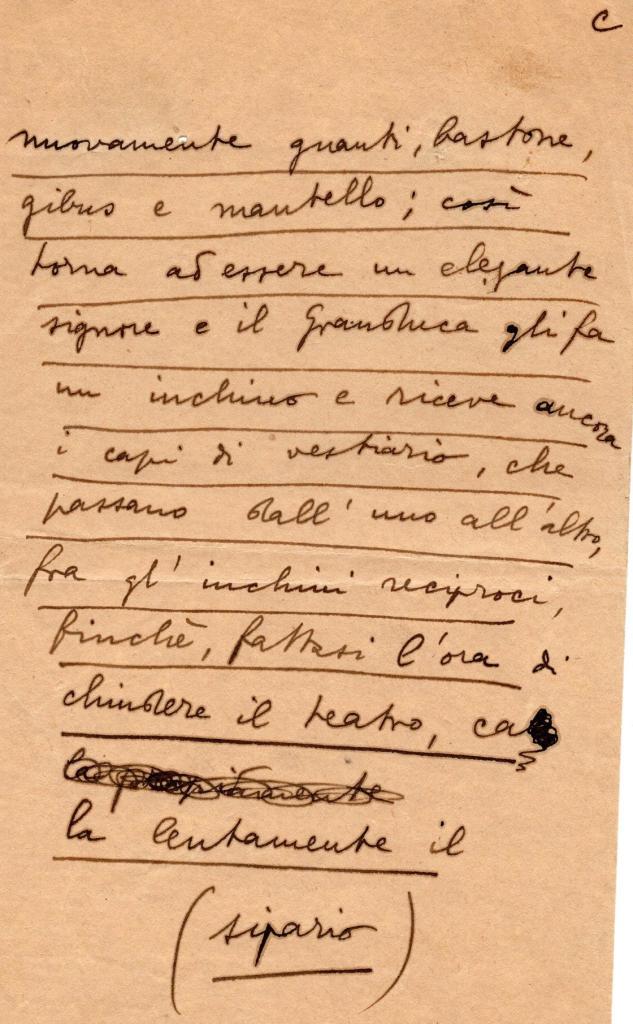 C
nuovamente guanti, bastone,
gibus e mantello; così
torna ad essere un elegante
signore e il Granduca gli fa
un inchino e riceve ancora
i capi di vestiario, che
passano dall'uno all'altro,
fra gl'inchini reciproci,
finchè, fattasi l'ora di
chiudere il teatro, ca
la lentamente il
(sipario)